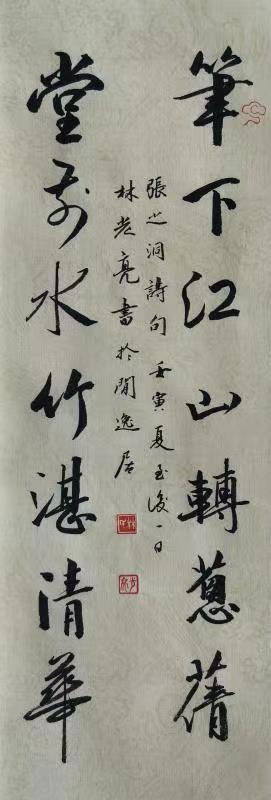 筆下江山轉蔥蒨
張之洞詩句 壬寅夏至後一日
林光亮書於閒逸居
堂前水竹湛清華